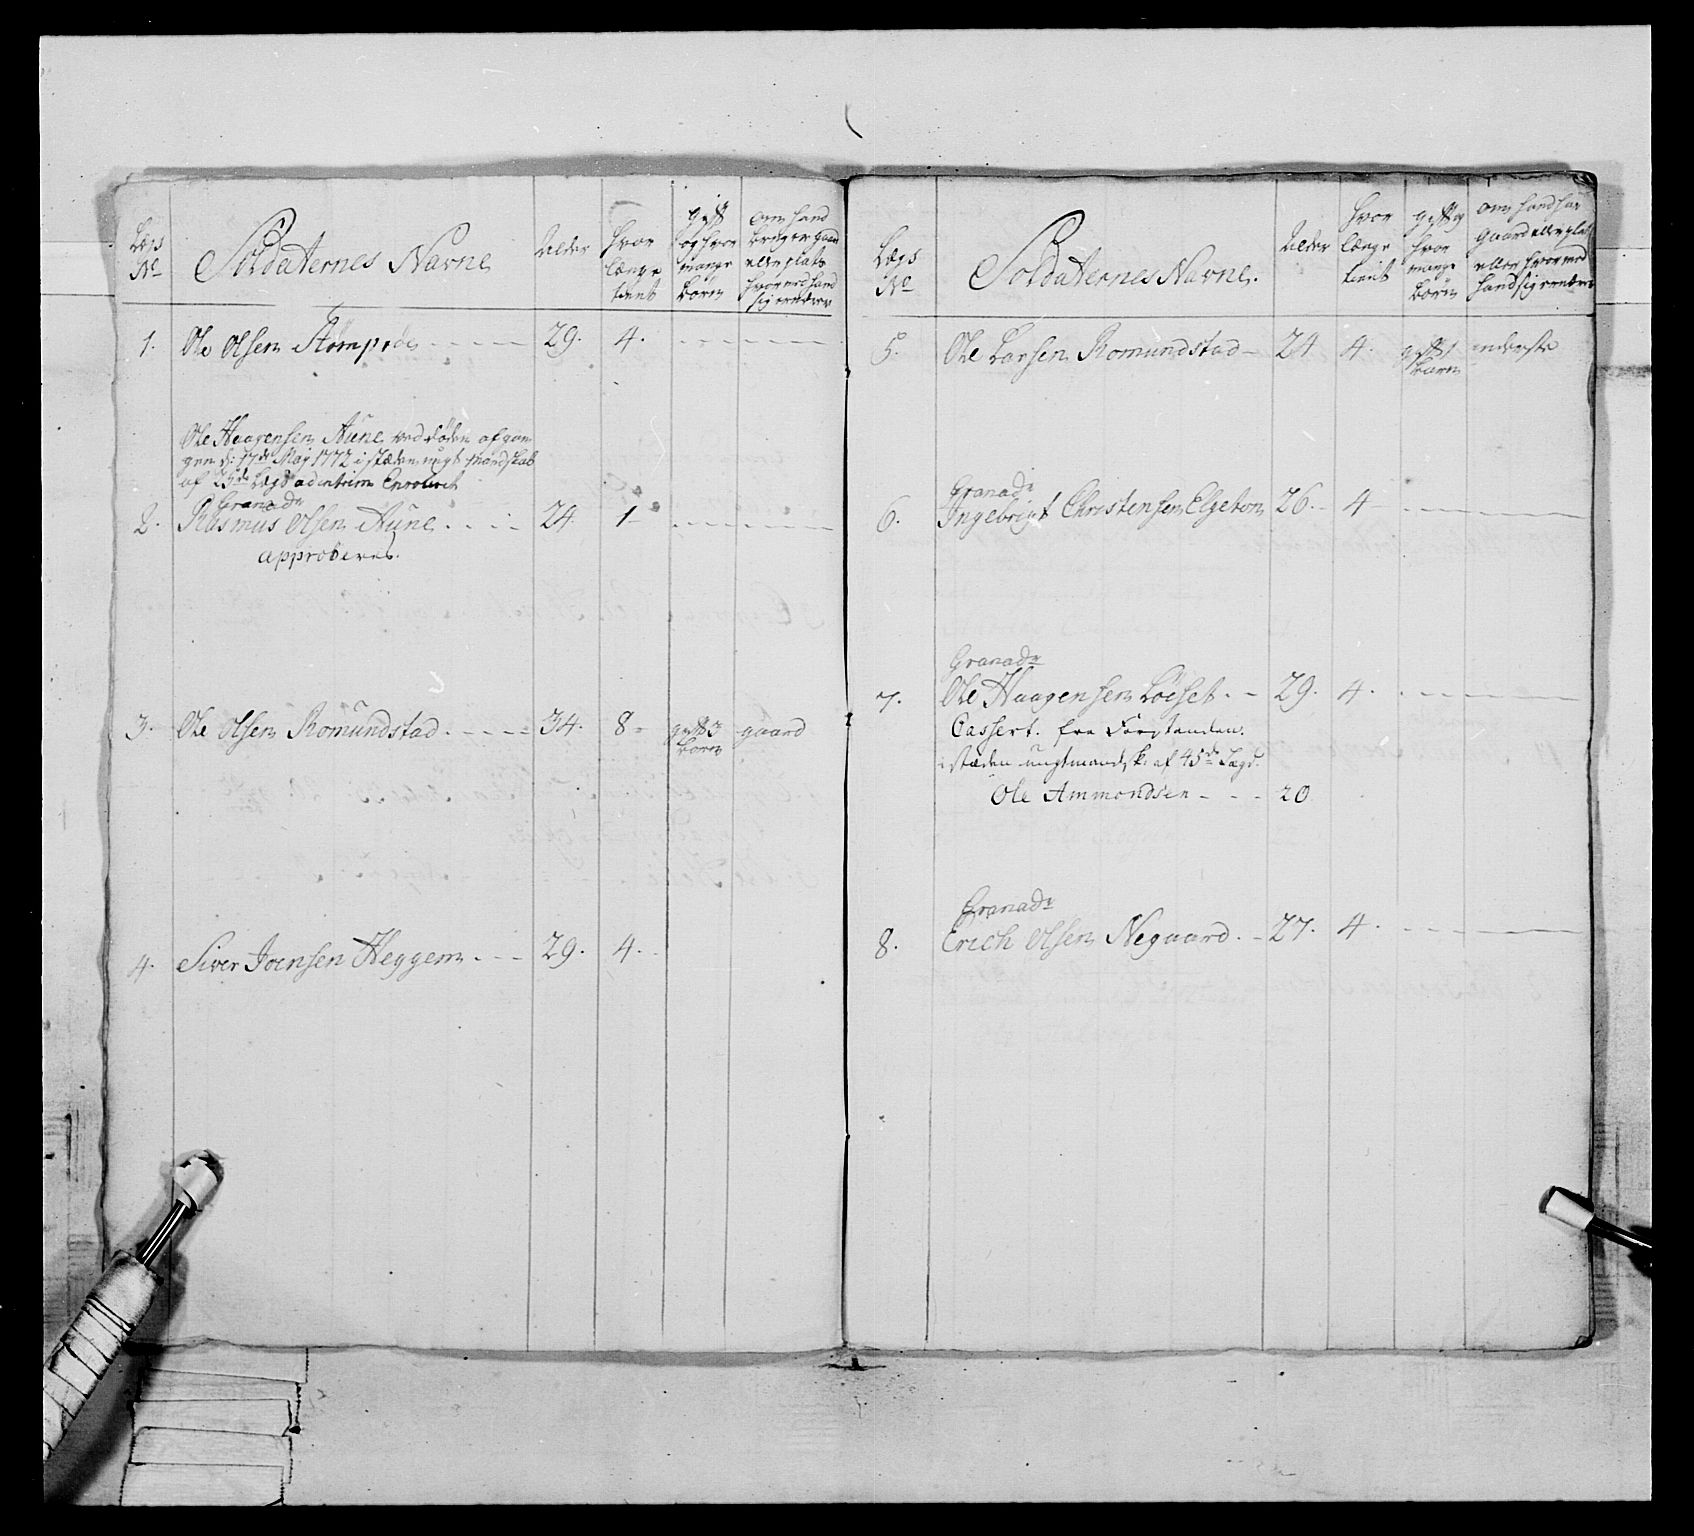 Lægs No
Soldaternes Navne
Alder
hvor længe tient
gift og hvor mange børn
om hand bruger gaard eller plats hvormed hand sig ernærer
1. Ole Olsen - - - - - 29. 4. - - - - - -
Ole Haagensen Aune ved døden afgan-
gen d: 17de May 1772 i stæden ungt mandskab
af 25de Lægd ad intrim Enrolerit
Granadr
2. Rasmus Olsen Aune . . . - 24 1 - - - - - - -
approberes.
3. Ole Olsen Romundstad . - - - - 34. 8 - gift 3 børn gaard
4. Siver Joensen Heggem - - - 29. 4. -
Lægs No
Soldaternes Navne.
Alder
hvor længe tient
gift og hvor mange børn
om hand har gaard eller plats eller hvormed hand sig ernærer
5. Ole Larsen Romundstad - 24 4. gift 1 barn inderste
Granadr
6. Ingebrigt Christensen Elgeton 26. - 4 - - - - - -
Granadr
7. Ole Haagensen Løeset . - 29. 4. - - - - - -
Cassert. fra Forstanden.
i stæden ungtmandsk: af 45de Lægd.
Ole Ammondsen - - - 20
Granadr
8. Erich Olsen Negaard . - 27. 4. - - - - - -